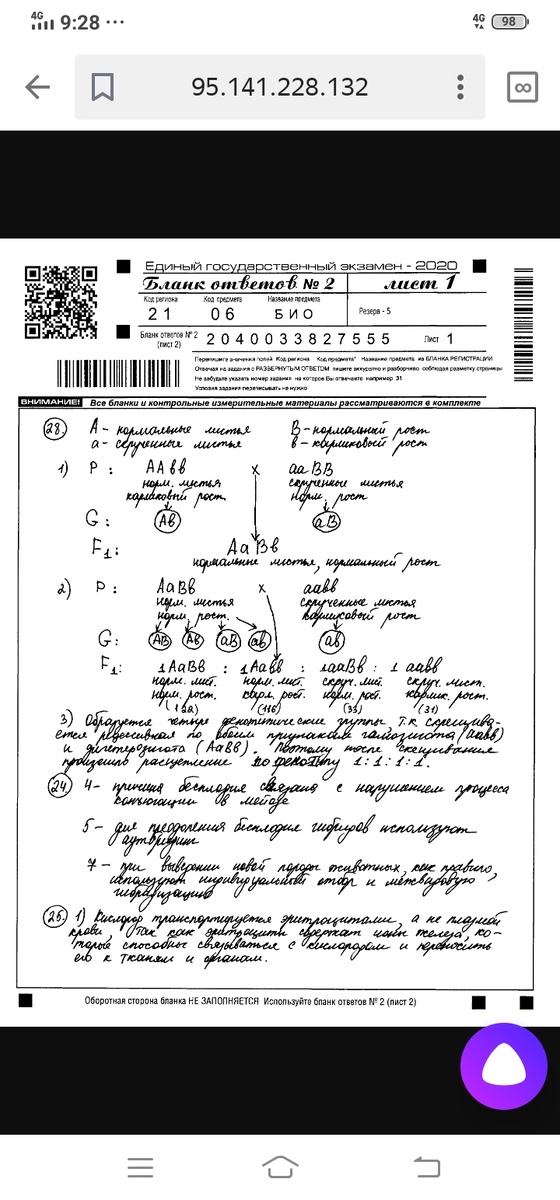 4G 9:28 ... 4G 98
95.141.228.132
Единый государственный экзамен - 2020
Бланк ответов № 2 лист 1
Код региона Код предмета Название предмета Резерв - 5
21 06 БИО
Бланк ответов № 2 (лист 2) 2040033827555 Лист 1
Перепишите значения полей "Код региона" "Код предмета" "Название предмета" из БЛАНКА РЕГИСТРАЦИИ
Отвечая на задания с РАЗВЕРНУТЫМ ОТВЕТОМ пишите аккуратно и разборчиво соблюдая разметку страницы
Не забудьте указать номер задания на которое Вы отвечаете например 31
Условия задания переписывать не нужно
ВНИМАНИЕ! Все бланки и контрольные измерительные материалы рассматриваются в комплекте
28. А - нормальные листья В - нормальный рост
а - скрученные листья в - карликовый рост
1) P: ААвв х ааВВ
норм. листья скрученные листья
карликовый рост норм. рост
G: Ав аВ
F1: АаВв
нормальные листья, нормальный рост
2) P: АаВв х аавв
норм. листья скрученные листья
норм. рост. карликовый рост
G: АВ Ав аВ ав ав
F1: 1АаВв : 1Аавв : 1ааВв : 1 аавв
норм. лист. норм. лист. скруч. лист. скруч. лист.
норм. рост. карл. рост. норм. рост. карлик. рост.
(116) (31)
3) Образуется четыре фенотипические группы т.к скрещива-
ется рецессивная по обоим признакам гомозигота (аавв)
и дигетерозигота (АаВв). Поэтому после скрещивания
произошло расщепление по фенотипу 1:1:1:1.
24 4 - причина бесплодия связана с нарушением процесса
конъюгации в мейозе
5 - для преодоления бесплодия гибридов используют
7 - при выведении новой породы животных, как правило,
используют индивидуальный отбор и межвидовую
гибридизацию
25. 1) Кислород транспортируется эритроцитами, а не плазмой
крови, так как эритроциты содержат ионы железа, ко-
торые способны связываться с кислородом и переносить
его к тканям и органам.
Оборотная сторона бланка НЕ ЗАПОЛНЯЕТСЯ Используйте бланк ответов № 2 (лист 2)